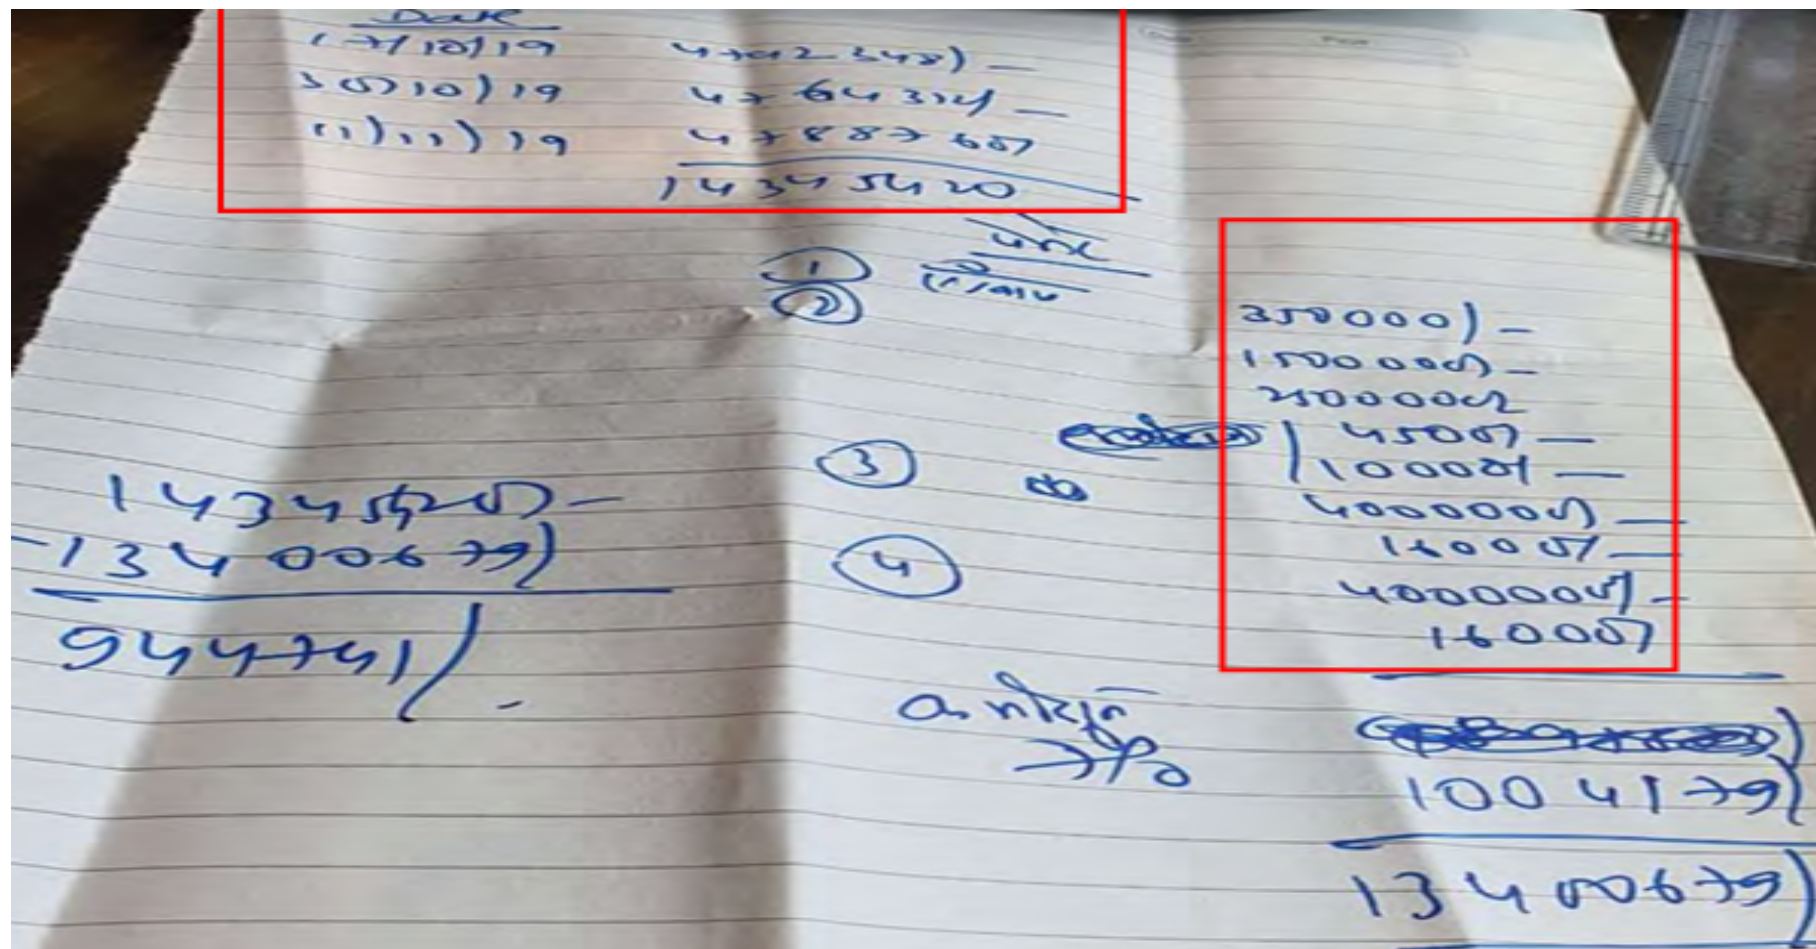 Date
17/10/19 4792348/-
30/10/19 4764312/-
11/11/19 4788760/
14345420
1
2
350000/-
1500000/-
2500000/-
4500/-
3
10000/-
4000000/-
4
16000/-
4000000/-
16000/
14345420/-
-13400679/
944741/-
1004179/
13400679/